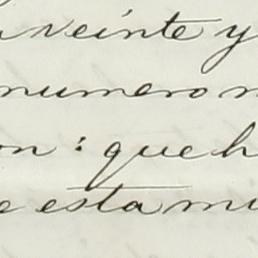 veinte y
numero
on : que h
e esta mu